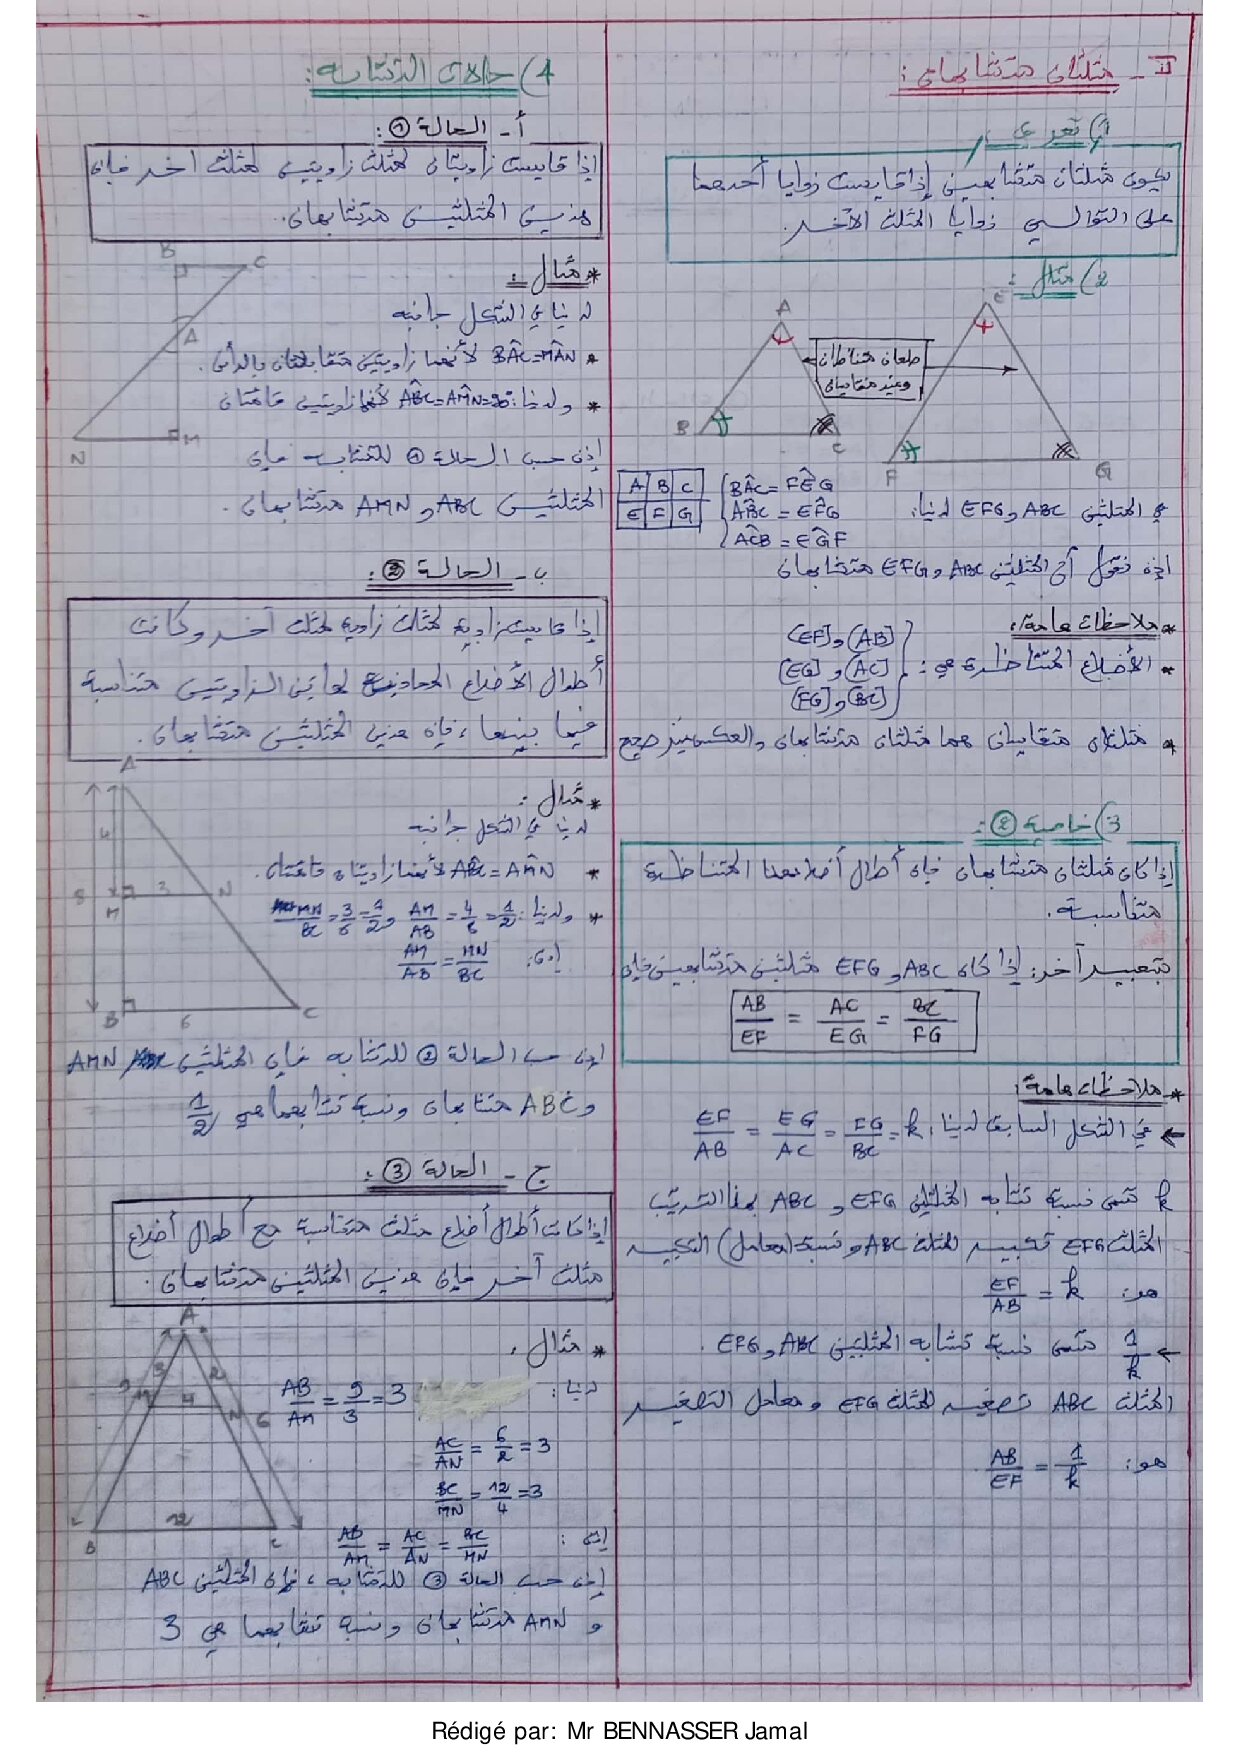 II - مثلثان متشابهان :
1) تعريف :
يكون مثلثان متشابهين إذا قايست زوايا أحدهما
على التوالي زوايا المثلث الآخر.
2) مثال :
A
E
ضلعان متناظران
وغير متقايسان
B
C
F
G
في المثلثين ABC و EFG لدينا:
BÂC = FÊG
AB̂C = EF̂G
AĈB = EĜF
A B C
E F G
إذن نقول أن المثلثين ABC و EFG متشابهان
* ملاحظات عامة :
* الأضلاع المتناظرة هي :
[AB] و [EF]
[AC] و [EG]
[BC] و [FG]
* مثلثان متقايسان هما مثلثان متشابهان والعكس غير صحيح
3) خاصية ② :
إذا كان مثلثان متشابهان فإن أطوال أضلاعهما المتناظرة
متناسبة.
بتعبير آخر : إذا كان ABC و EFG مثلثين متشابهين فإن
AB/EF = AC/EG = BC/FG
* ملاحظات عامة :
← في الشكل السابق لدينا : EF/AB = EG/AC = FG/BC = k
k تسمى نسبة تشابه المثلثين EFG و ABC بهذا الترتيب
المثلث EFG تكبير للمثلث ABC ونسبة (معامل) التكبير
هو : EF/AB = k
← 1/k تسمى نسبة تشابه المثلثين ABC و EFG .
المثلث ABC تصغير للمثلث EFG ومعامل التصغير
هو : AB/EF = 1/k
4) حالات التشابه :
أ - الحالة ① :
إذا قايست زاويتان لمثلث زاويتين لمثلث آخر فإن
هذين المثلثين متشابهان.
B
C
A
M
N
* مثال :
لدينا في الشكل جانبه
* BÂC = MÂN لأنهما زاويتين متقابلتان بالرأس.
* ولدينا : AB̂C = AM̂N = 90° لأنهما زاويتين قائمتان
إذن حسب الحالة ① للتشابه فإن
المثلثين ABC و AMN متشابهان.
ب - الحالة ② :
إذا قايست زاوية لمثلث زاوية لمثلث آخر وكانت
أطوال الأضلاع المحاذية لهاتين الزاويتين متناسبة
فيما بينها ، فإن هذين المثلثين متشابهان.
A
4
8
3
N
M
B
6
C
* مثال :
لدينا في الشكل جانبه
* AB̂C = AM̂N لأنهما زاويتان قائمتان.
* ولدينا : AM/AB = 4/8 = 1/2 و MN/BC = 3/6 = 1/2
إذن : AM/AB = MN/BC
إذن حسب الحالة ② للتشابه فإن المثلثين AMN
و ABC متشابهان ونسبة تشابههما هي 1/2
ج - الحالة ③ :
إذا كانت أطوال أضلاع مثلث متناسبة مع أطوال أضلاع
مثلث آخر فإن هذين المثلثين متشابهان.
A
9
3
2
M
4
N
6
B
12
C
* مثال :
لدينا : AB/AM = 9/3 = 3
AC/AN = 6/2 = 3
BC/MN = 12/4 = 3
إذن : AB/AM = AC/AN = BC/MN
إذن حسب الحالة ③ للتشابه ، فإن المثلثين ABC
و AMN متشابهان ونسبة تشابههما هي 3
Rédigé par: Mr BENNASSER Jamal